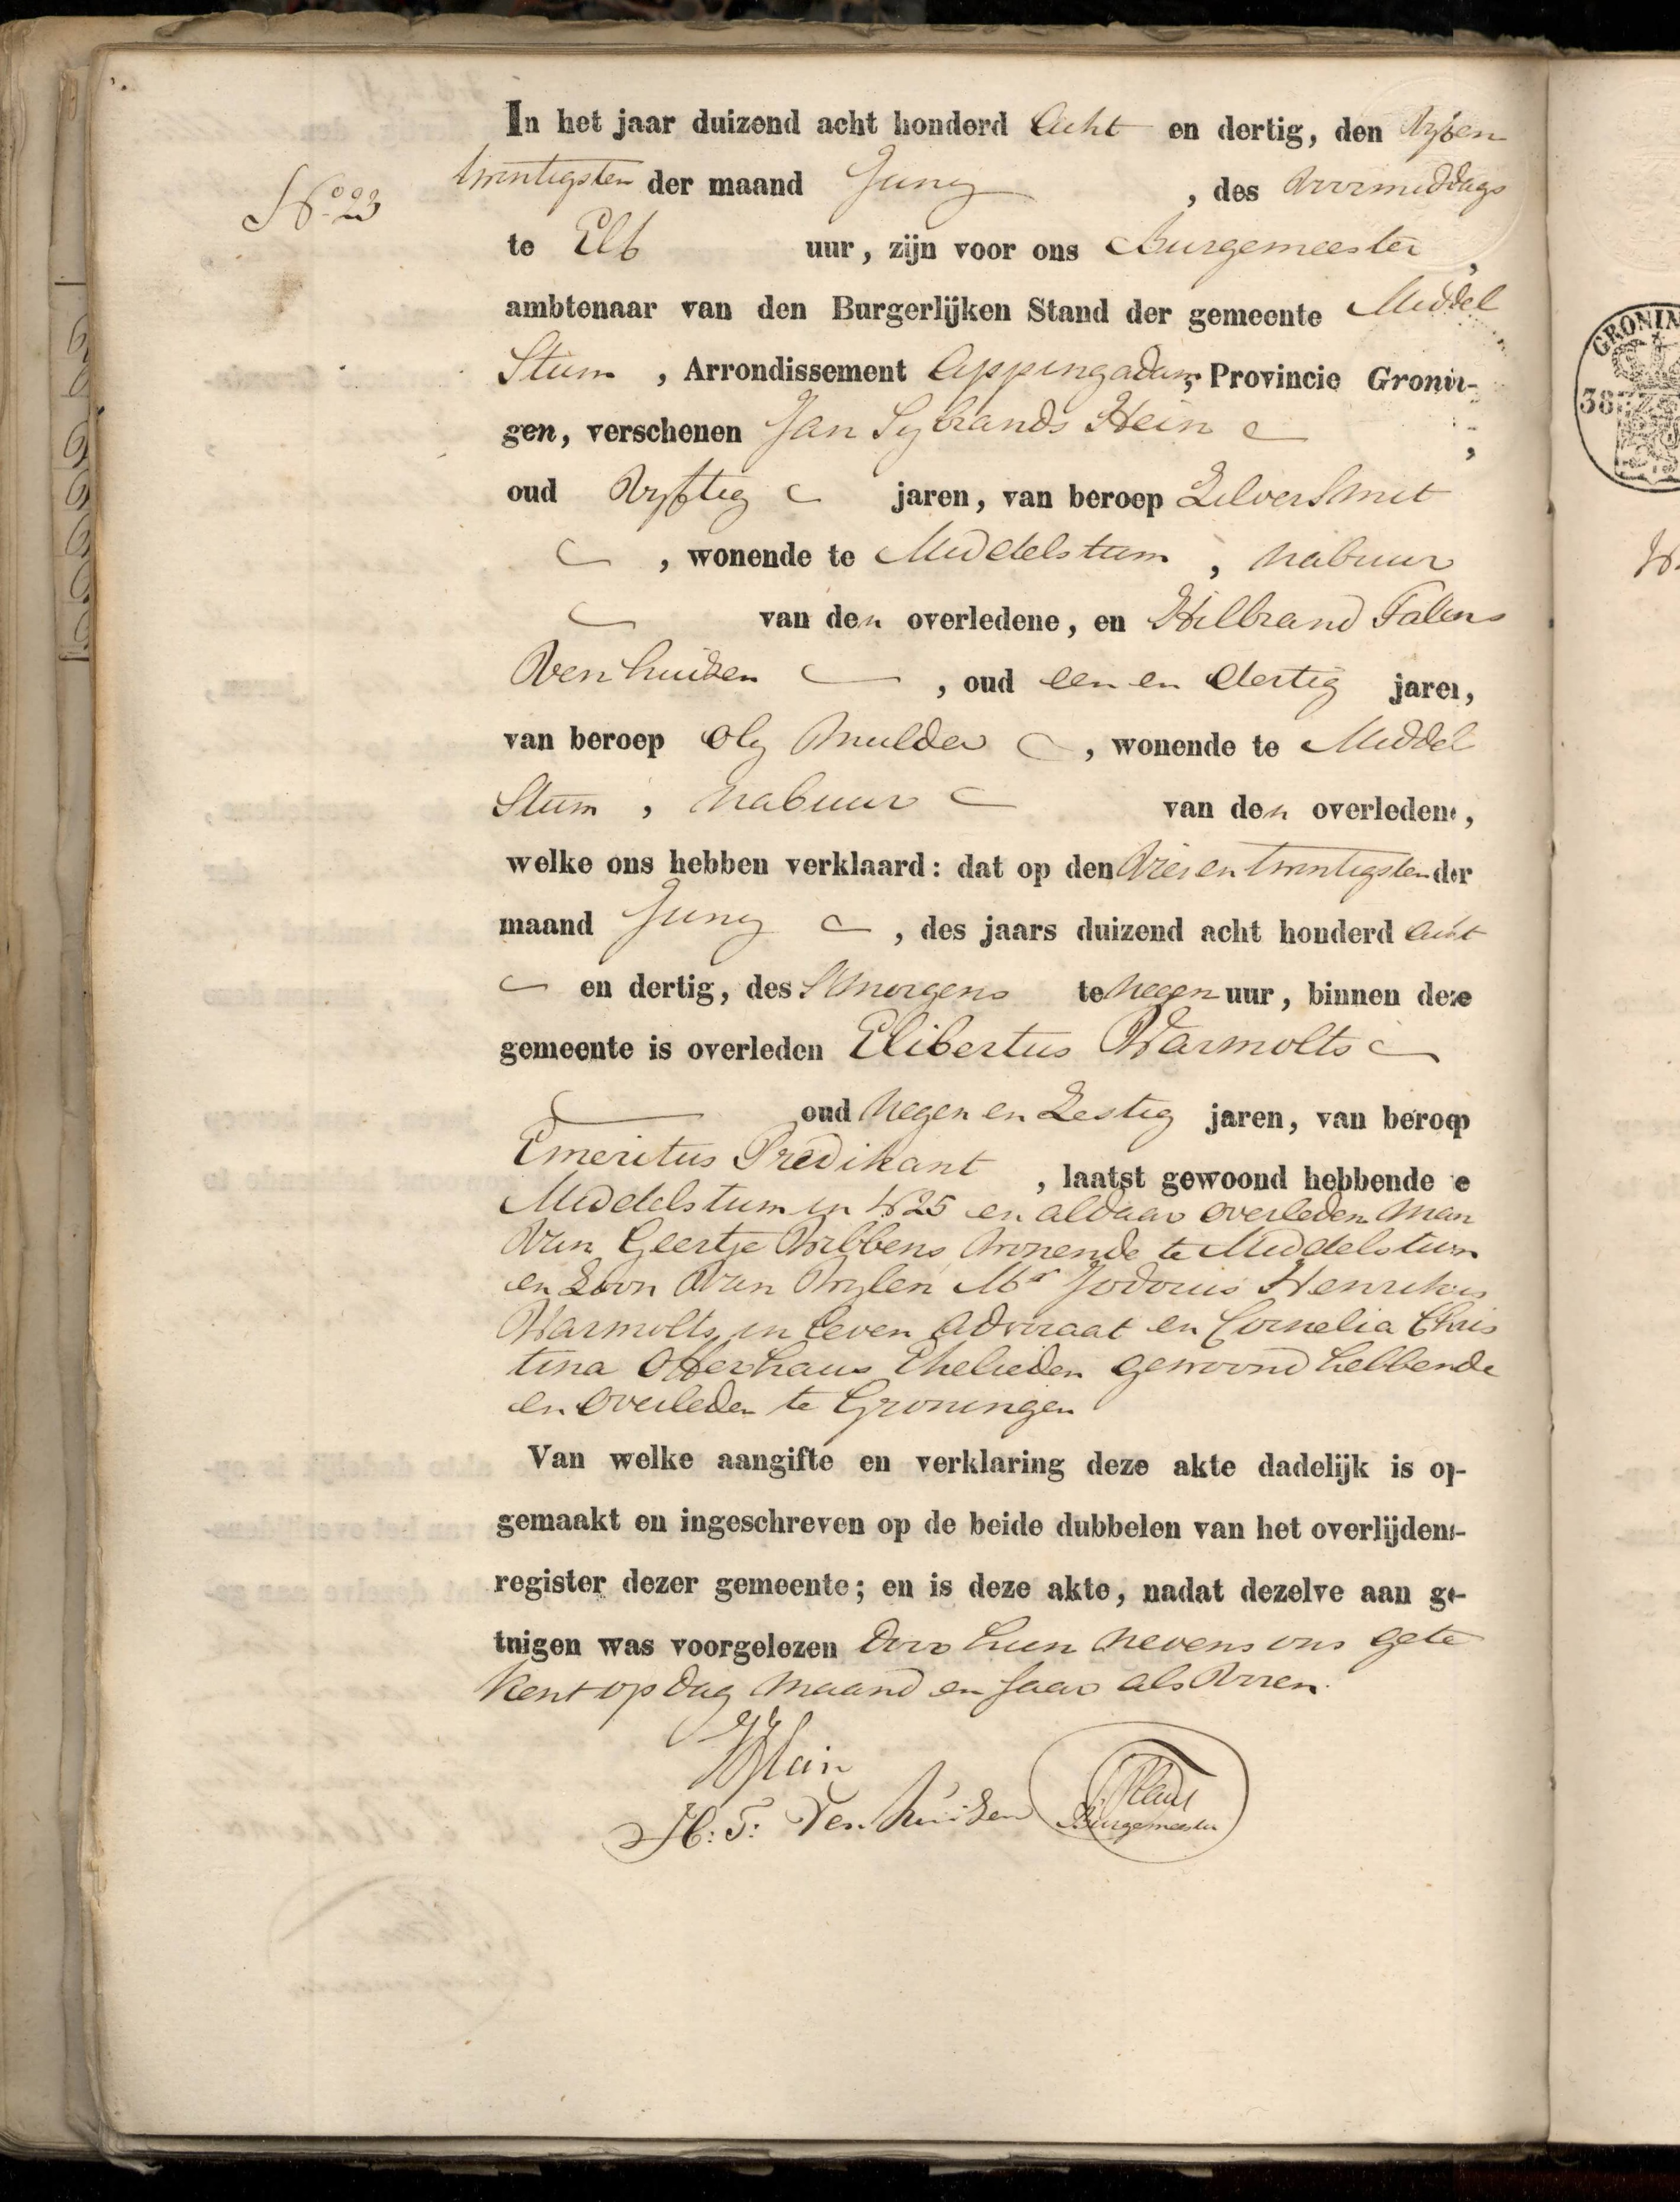 In het jaar duizend acht honderd Acht en dertig, den Vyf en
twintigsten der maand Juny , des Voormiddags
No 23
te Elf uur, zijn voor ons Burgemeester ,
ambtenaar van den Burgerlijken Stand der gemeente Middel
Stum , Arrondissement Appingadam, Provincie Gronin-
gen, verschenen Jan Sybrands Hein ,
oud Vyftig jaren, van beroep Zilversmit
, wonende te Middelstum , nabuur
van den overledene, en Hilbrand
Venhuizen , oud een en dertig jaren,
van beroep Oly Mulder , wonende te Middel
Stum , nabuur van den overledene,
welke ons hebben verklaard: dat op den Drie en twintigsten der
maand Juny , des jaars duizend acht honderd Acht
en dertig, des Smorgens te negen uur, binnen deze
gemeente is overleden Elibertus Warmolts
oud Negen en Zestig jaren, van beroep
Emeritus Predikant , laatst gewoond hebbende te
Middelstum in N 25 en aldaar overleden man
van Geertje Wibbens wonende te Middelstum
en Zoon van wylen Mr Jodocus Henrikus
Warmolts, in leven Advocaat en Cornelia Chris
tina Otterhaus Ehelieden gewoond hebbende
en overleden te Groningen
Van welke aangifte en verklaring deze akte dadelijk is op-
gemaakt en ingeschreven op de beide dubbelen van het overlijdens-
register dezer gemeente; en is deze akte, nadat dezelve aan ge-
tuigen was voorgelezen door hun nevens ons gete
kent op dag maand en Jaar als Voren.
Hein
H: T: Venhuizen
Burgemeester
GRONIN
38